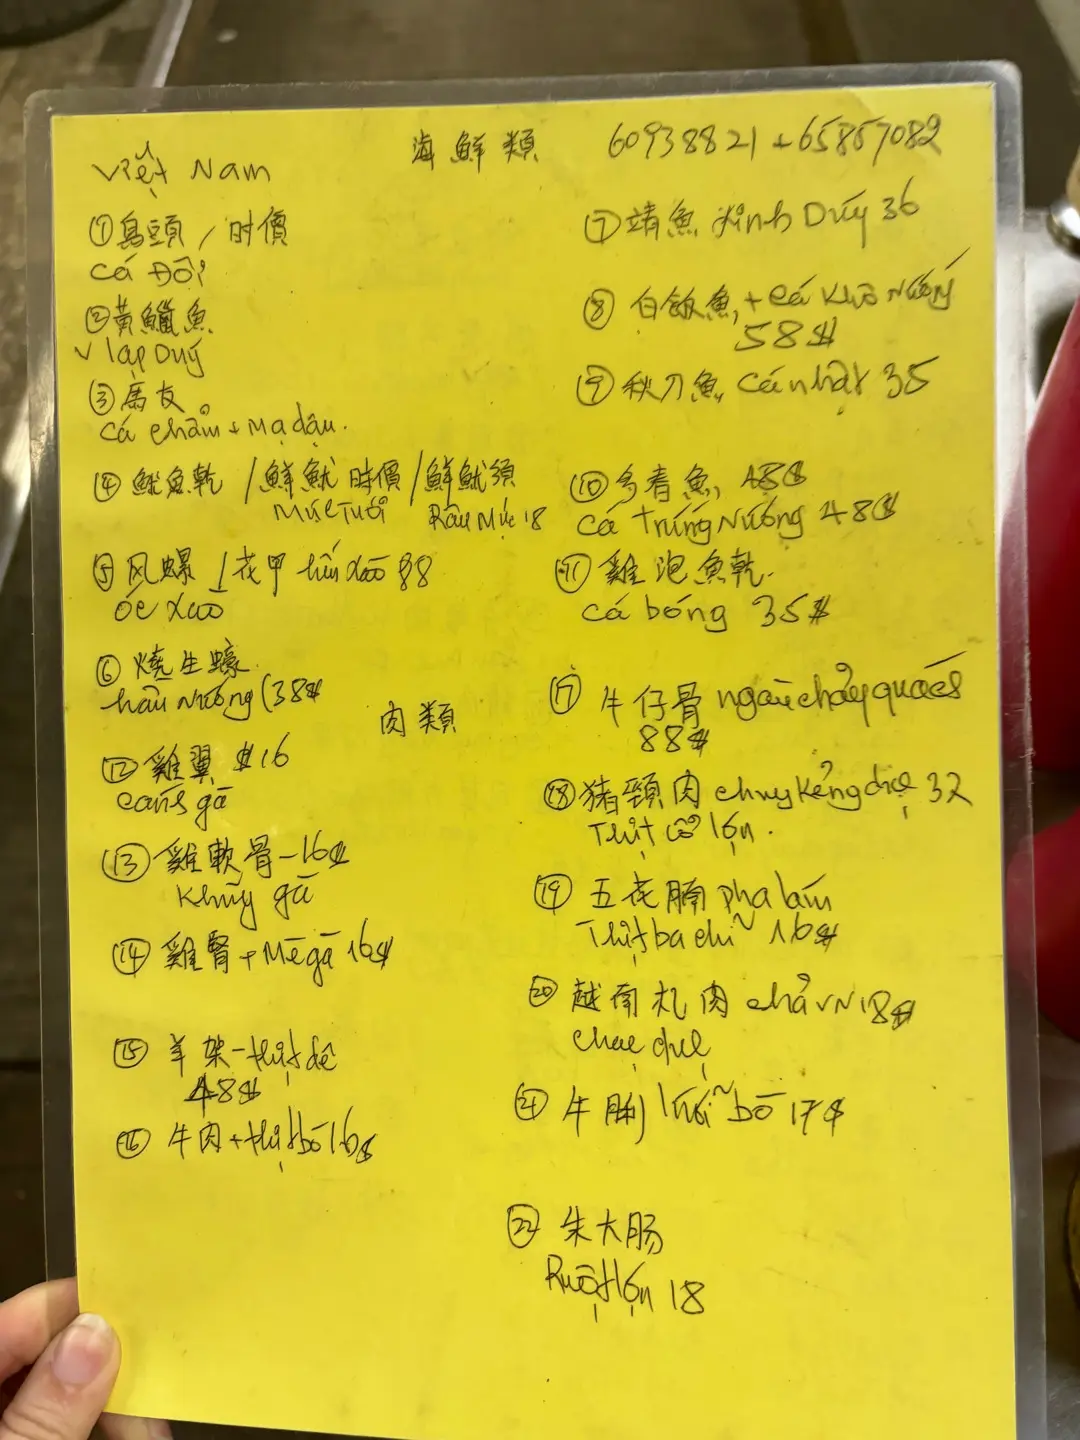 Việt Nam
海鮮類
60938821 + 65857082
① 烏頭 / 时價
cá Đối
② 黃鱲魚
v lạp Duý
③ 馬友
cá chẻm + Mạ dậu.
④ 魷魚乾 / 鮮魷 時價 / 鮮魷須
Mực Tươi
Râu Mực 18
⑤ 风螺 / 花甲 hến xào 88
ốc xào
⑥ 燒生蠔
hàu Nướng (38$
⑦ 靖魚 xinh Duý 36
⑧ 白飯魚 + cá Khô Nướng
58$
⑨ 秋刀魚 cá nhật 35
⑩ 多春魚 48$
cá trứng Nướng 48$
⑪ 雞泡魚乾
cá bóng 35$
肉類
⑫ 雞翼 $16
cánh gà
⑬ 雞軟骨 - 16$
Khủy gà
⑭ 雞腎 + Mề gà 16$
⑮ 羊架 - thịt dê
48$
⑯ 牛肉 + thịt bò 16$
⑰ 牛仔骨 ngàu chảy quács
88$
⑱ 猪頸肉 chuy kẻng dục 32
Thịt cổ lợn.
⑲ 五花腩 pha lám
Thịt ba chỉ 16$
⑳ 越南扎肉 chả VN 18$
chac dục
21 牛脷 lưỡi bò 17$
22 朱大肠
Ruột lợn 18